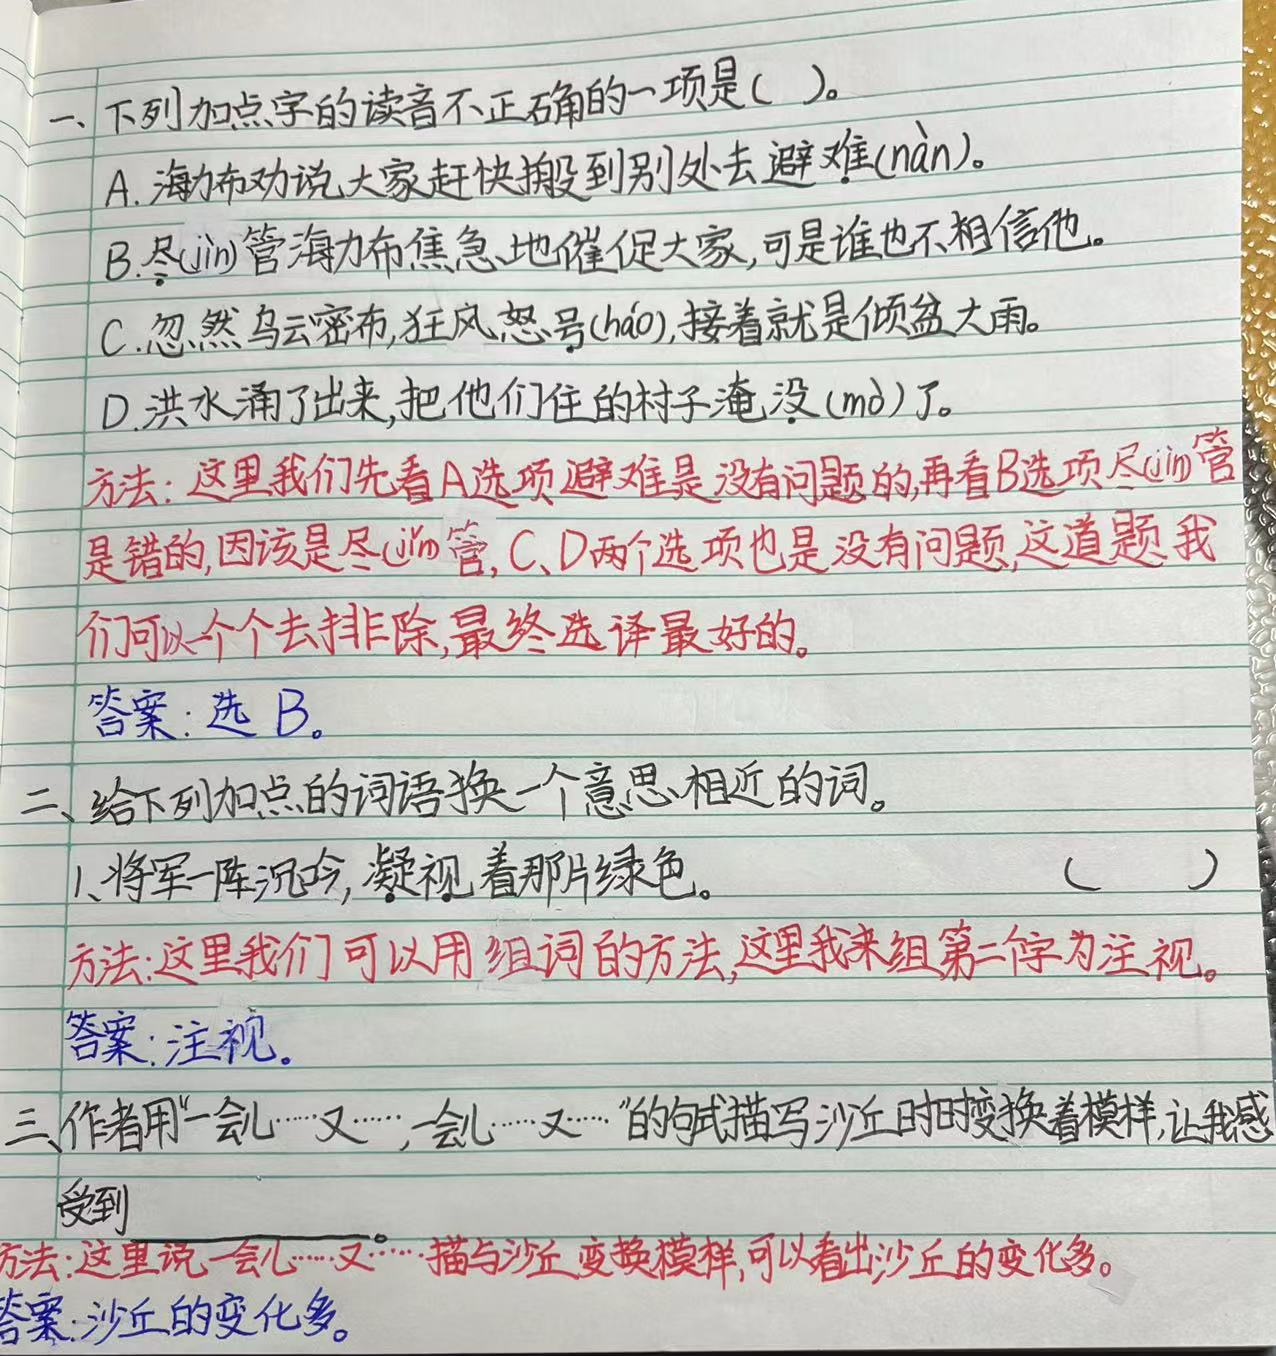 一、下列加点字的读音不正确的一项是( )。
A.海力布劝说大家赶快搬到别处去避难(nàn)。
B.尽(jìn)管海力布焦急地催促大家,可是谁也不相信他。
C.忽然乌云密布,狂风怒号(háo),接着就是倾盆大雨。
D.洪水涌了出来,把他们住的村子淹没(mò)了。
方法:这里我们先看A选项避难是没有问题的,再看B选项尽(jìn)管
是错的,因该是尽(jǐn)管,C、D两个选项也是没有问题,这道题我
们可以一个个去排除,最终选译最好的。
答案:选B。
二、给下列加点的词语换一个意思相近的词。
1、将军一阵沉吟,凝视着那片绿色。 ( )
方法:这里我们可以用组词的方法,这里我来组第二个字为注视。
答案:注视。
三、作者用"一会儿……又……,一会儿……又……"的句式描写沙丘时时变换着模样,让我感
受到________。
方法:这里说一会儿……又……描写沙丘变换模样,可以看出沙丘的变化多。
答案:沙丘的变化多。